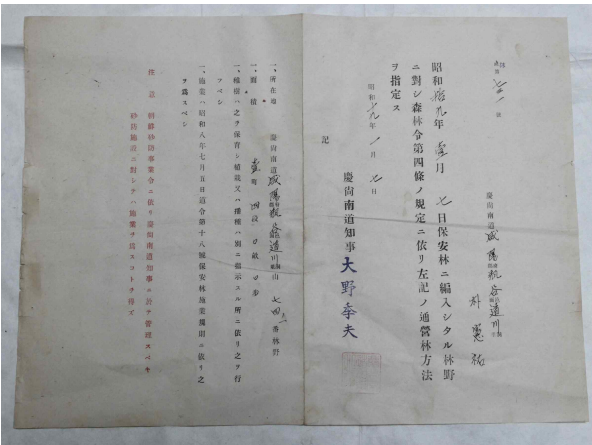 慶尚南道咸陽
昭和拾九年壹月七日保安林ニ編入シタル林野
ニ對シ森林令第四條ノ規定ニ依リ左記ノ通營林方法
ヲ指定ス
昭和十九年一月七日
慶尚南道知事大野
記
一、所在地 慶尚南道咸陽 山七四 番林野
一、面積 壹町四段〇畝〇歩
一、 之ヲ保育シ植栽又ハ播種ハ別ニ指示スル所ニ依リ之ヲ行
フベシ
一、施業ハ昭和八年七月五日道令第十八號保安林施業規則ニ依リ之
ヲ爲スベシ
注意 朝鮮砂防事業令ニ依リ慶尚南道知事ニ於テ管理スベキ
砂防施設ニ對シテハ施業ヲ爲スコトヲ得ズ